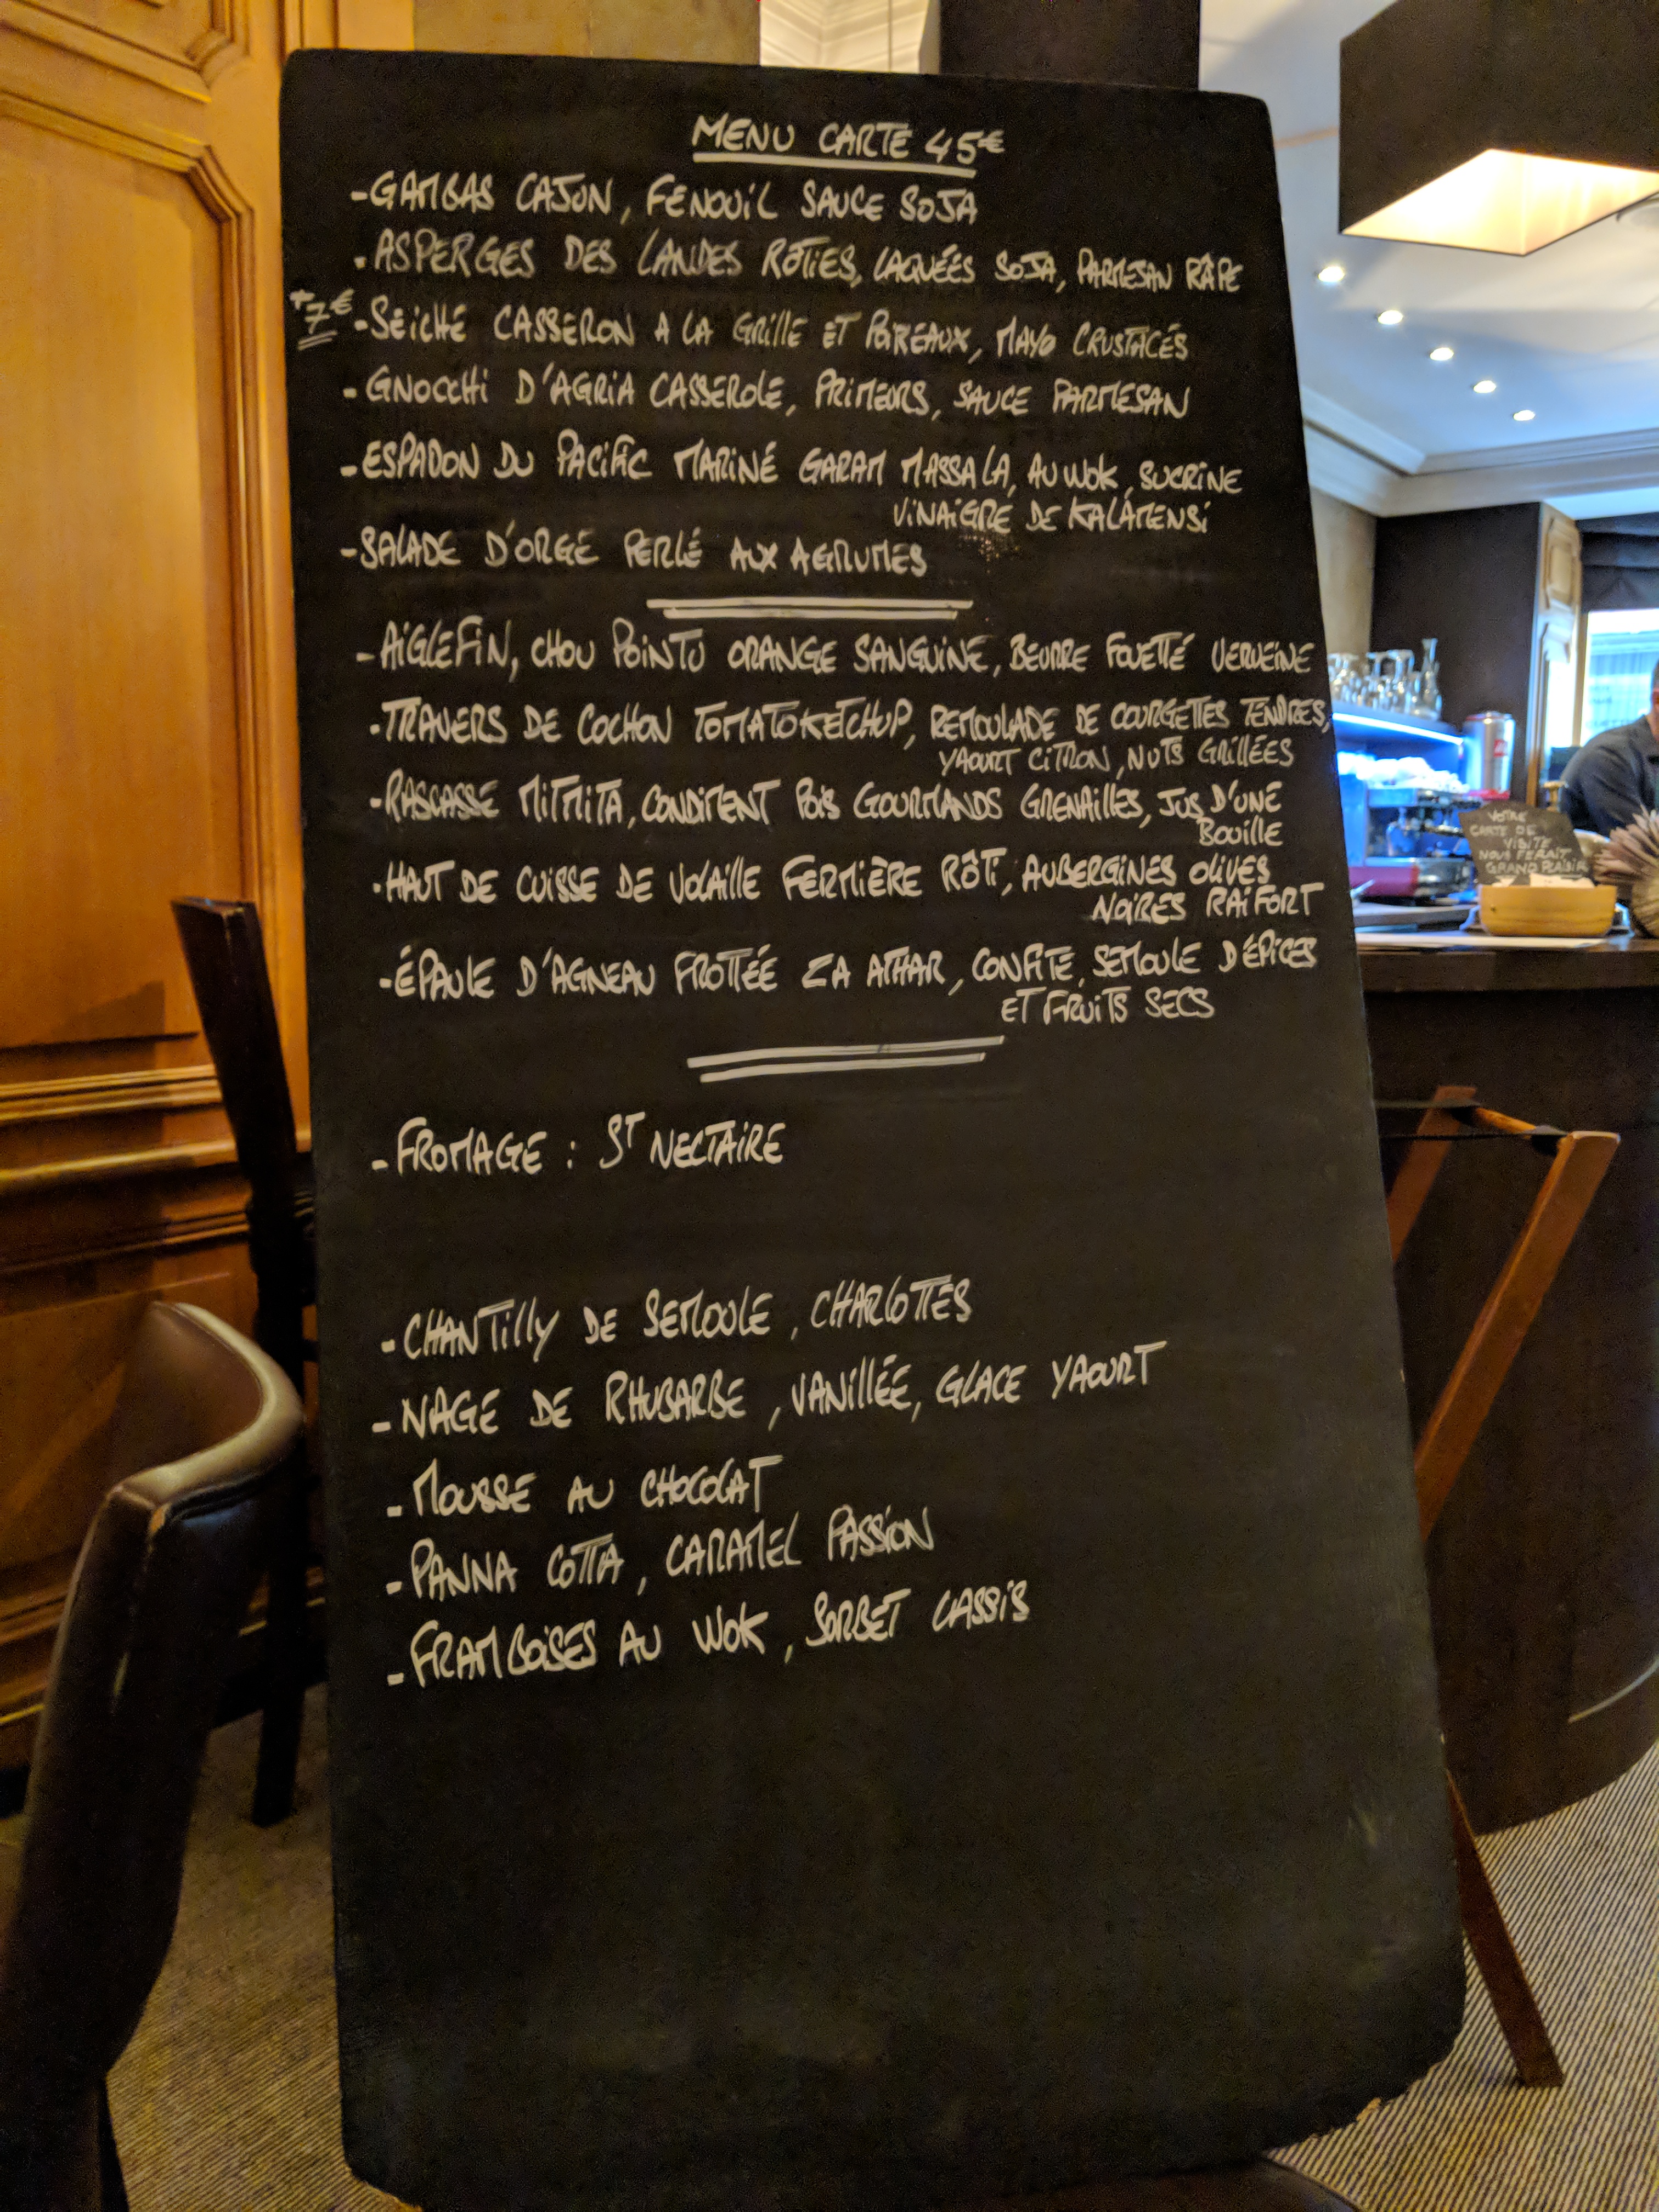 MENU CARTE 45€
-GAMBAS CAJUN, FENOUIL SAUCE SOJA
-ASPERGES DES LANDES RÔTIES, LAQUÉES SOJA, PARMESAN RÂPE
+7€ -SEICHE CASSERON A LA GRILLE ET POIREAUX, MAYO CRUSTACÉS
-GNOCCHI D'AGRIA CASSEROLE, PRIMEURS, SAUCE PARMESAN
-ESPADON DU PACIFIC MARINÉ GARAM MASSALA, AU WOK, SUCRINE
VINAIGRE DE KALAMENSI
-SALADE D'ORGE PERLÉ AUX AGRUMES
-AIGLEFIN, CHOU POINTU ORANGE SANGUINE, BEURRE FOUETTÉ VERVEINE
-TRAVERS DE COCHON TOMATOKETCHUP, REMOULADE DE COURGETTES TENDRES,
YAOURT CITRON, NUTS GRILLÉES
-RASCASSE MITMITA, CONDIMENT POIS GOURMANDS GRENAILLES, JUS D'UNE
BOUILLE
-HAUT DE CUISSE DE VOLAILLE FERMIÈRE RÔTI, AUBERGINES OLIVES
NOIRES RAIFORT
-ÉPAULE D'AGNEAU FROTTÉE ZA ATHAR, CONFITE, SEMOULE D'ÉPICES
ET FRUITS SECS
-FROMAGE : ST NECTAIRE
-CHANTILLY DE SEMOULE, CHARLOTTES
-NAGE DE RHUBARBE, VANILLÉE, GLACE YAOURT
-MOUSSE AU CHOCOLAT
-PANNA COTTA, CARAMEL PASSION
-FRAMBOISES AU WOK, SORBET CASSIS
VOTRE
CARTE DE
VISITE
NOUS FERAIT
GRAND PLAISIR